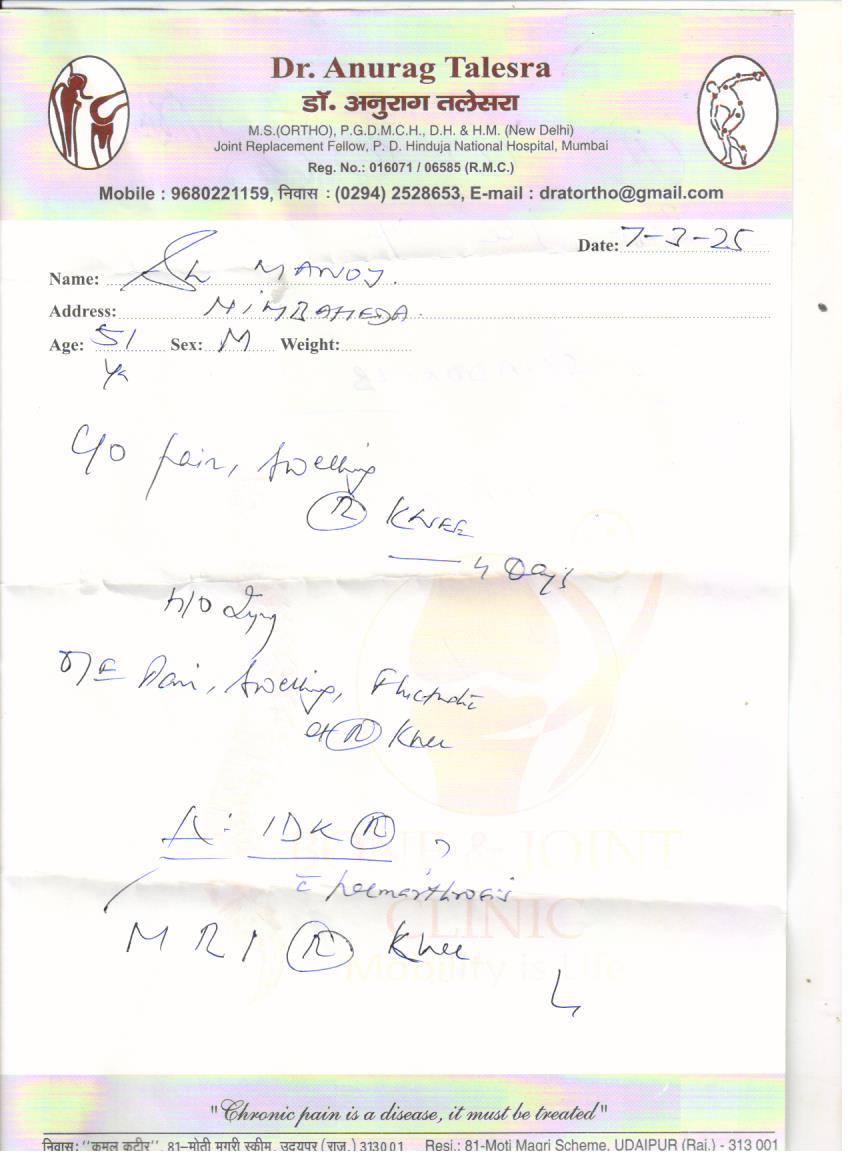 Dr. Anurag Talesra
डॉ. अनुराग तलेसरा
M.S.(ORTHO), P.G.D.M.C.H., D.H. & H.M. (New Delhi)
Joint Replacement Fellow, P. D. Hinduja National Hospital, Mumbai
Reg. No.: 016071 / 06585 (R.M.C.)
Mobile : 9680221159, निवास : (0294) 2528653, E-mail : dratortho@gmail.com
Date: 7-3-25
Name: Sh MANOJ.
Address: NIMBAHEDA.
Age: 51 Sex: M Weight:
Yr
C/O Pain, Swelling
(R) KNEE
4 Days
H/O
O/E Pain, Swelling,
(R) Knee
IDK (R) ?
c̄ haemarthrosis
MRI (R) Knee
BONE & JOINT
CLINIC
Mobility is Life
"Chronic pain is a disease, it must be treated"
निवास: "कमल कुटीर", 81-मोती मगरी स्कीम, उदयपुर (राज.) 313001 Resi.: 81-Moti Magri Scheme, UDAIPUR (Raj.) - 313 001